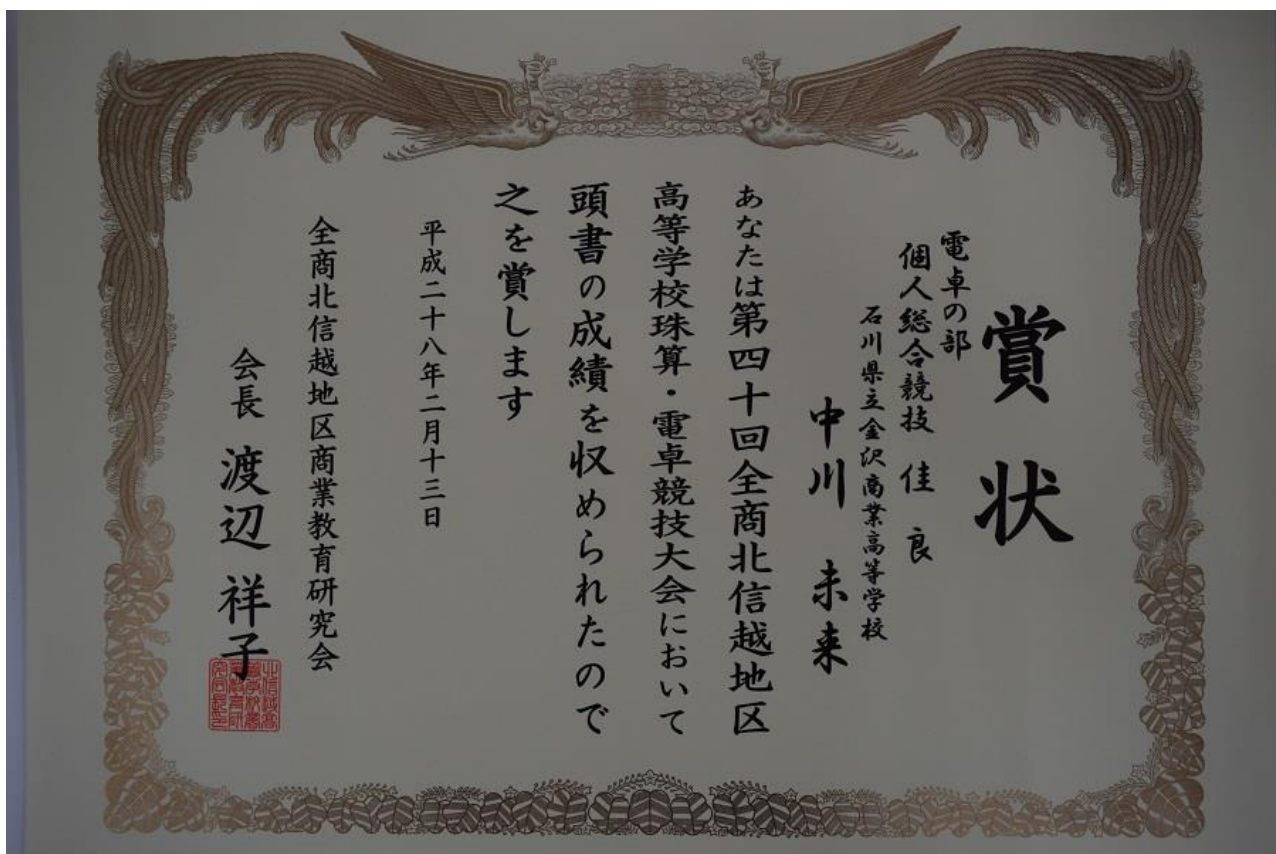 賞状
電卓の部
個人総合競技 佳良
石川県立金沢商業高等学校
中川 未来
あなたは第四十回全商北信越地区
高等学校珠算・電卓競技大会において
頭書の成績を収められたので
之を賞します
平成二十八年二月十三日
全商北信越地区商業教育研究会
会長 渡辺 祥子